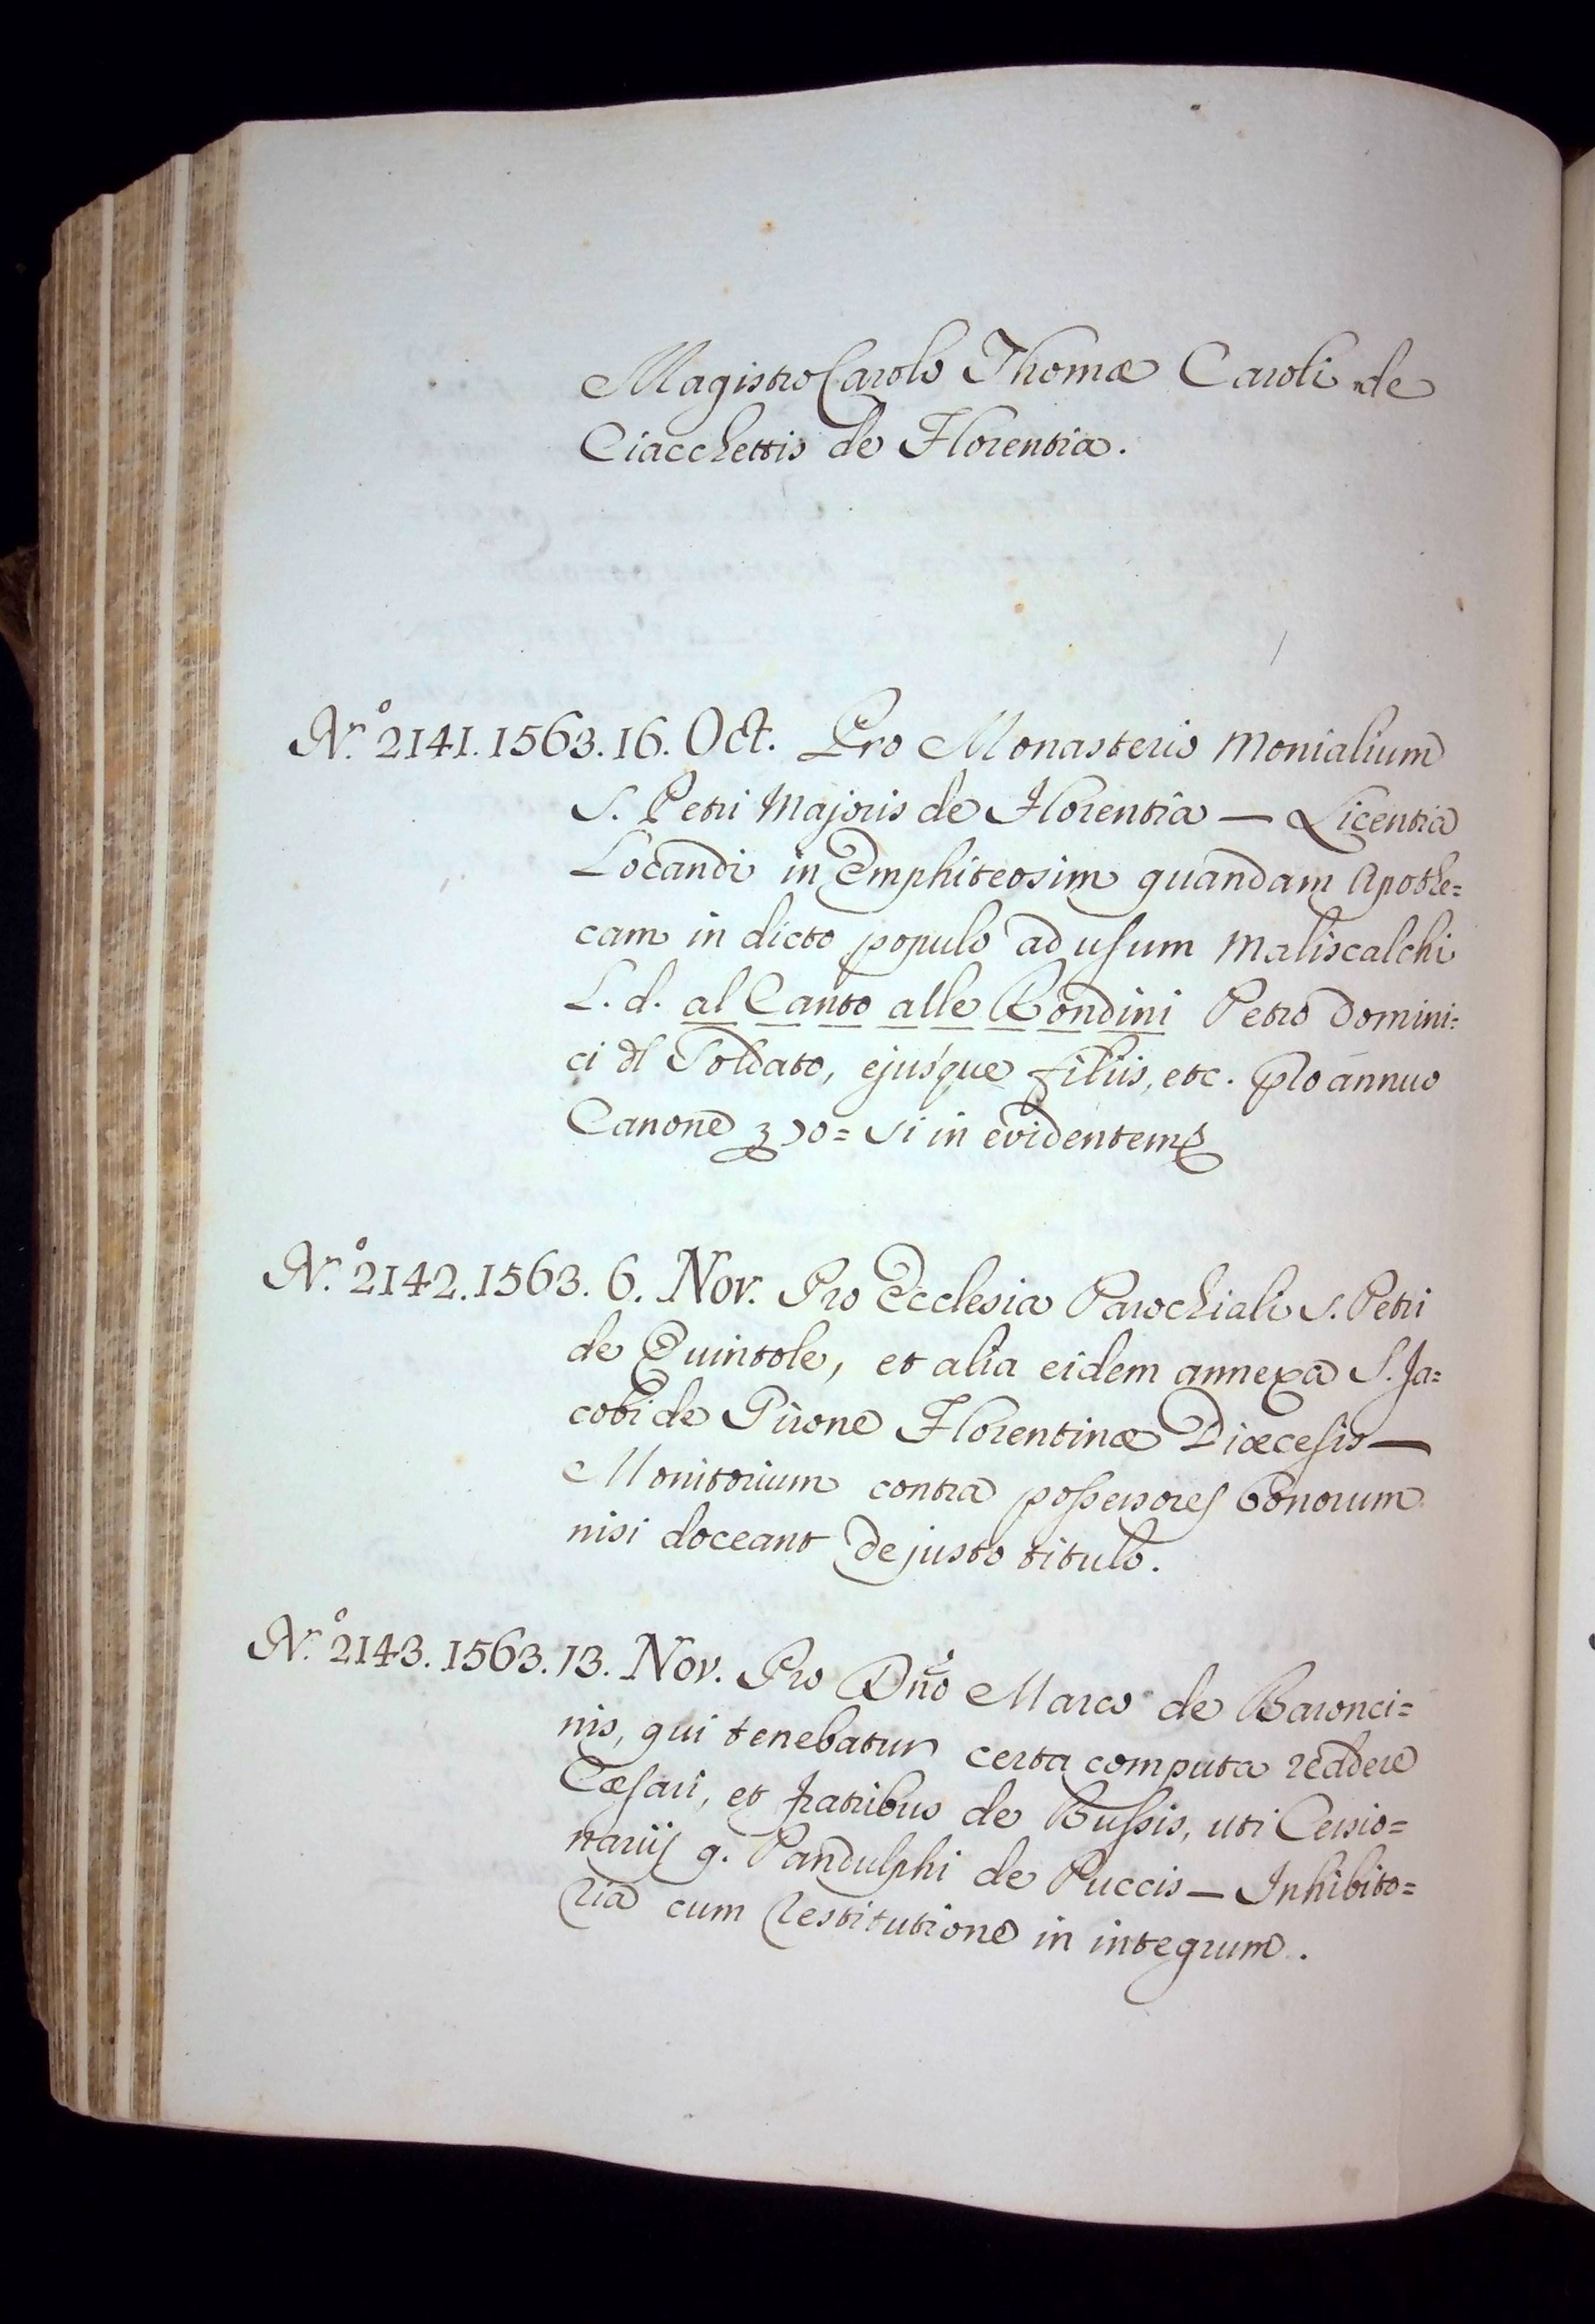 Magistro Carolo Thomæ Caroli de
Ciacchettis de Florentia.
N.º 2141. 1563. 16. Oct. Pro Monasterio Monialium
S. Petri Majoris de Florentia — Licentia
Locandi in Emphiteosim quandam Apothe=
cam in dicto populo ad usum Maliscalchi
L. d. al Canto alle Rondini Petro Domini=
ci dl Soldato, ejusque filiis, etc. pro annuo
Canone = si in evidentem
N.º 2142. 1563. 6. Nov. Pro Ecclesia Parochiali S. Petri
de Quintole, et alia eidem annexa S. Ja=
cobi de Pirone Florentinæ Diœcesis —
Monitorium contra possessores bonorum
nisi doceant de justo titulo.
N.º 2143. 1563. 13. Nov. Pro Dño Marco de Baronci=
nis, qui tenebatur certa computa reddere
Cæsari, et fratribus de Bussis, uti Cessio=
narijs q. Pandulphi de Puccis — Inhibito=
ria cum restitutione in integrum.